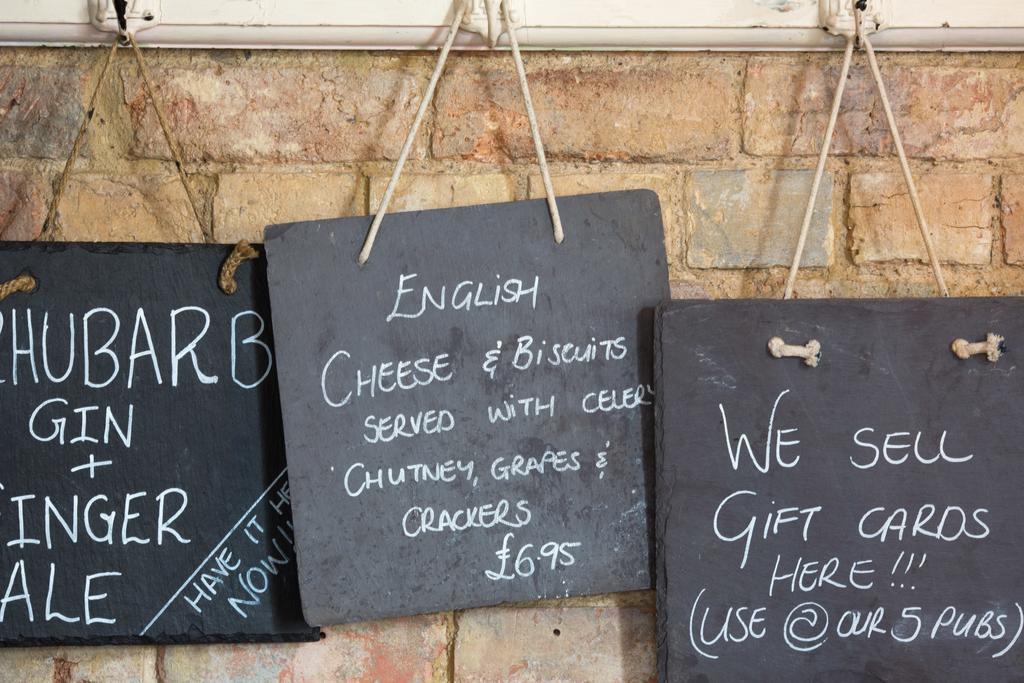 RHUBARB
GIN
+
GINGER
ALE
HAVE IT HE
NOW!!
ENGLISH
CHEESE & BISCUITS
SERVED WITH CELERY
CHUTNEY, GRAPES &
CRACKERS
£6.95
WE SELL
GIFT CARDS
HERE!!!
(USE @ OUR 5 PUBS)